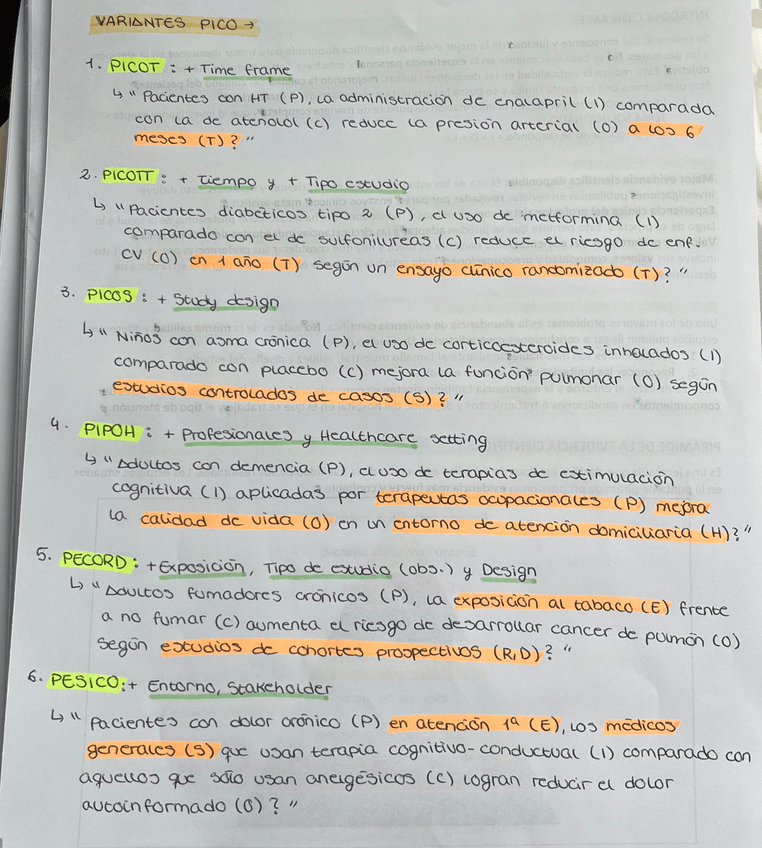 VARIANTES PICO →
1. PICOT : + Time frame
↳ "Pacientes con HT (P), la administración de enalapril (I) comparada
con la de atenolol (C) reduce la presión arterial (O) a los 6
meses (T)?"
2. PICOTT : + Tiempo y + Tipo estudio
↳ "Pacientes diabéticos tipo 2 (P), el uso de metformina (I)
comparado con el de sulfonilureas (C) reduce el riesgo de enf.
CV (O) en 1 año (T) según un ensayo clínico randomizado (T)?"
3. PICOS : + Study design
↳ "Niños con asma crónica (P), el uso de corticoesteroides inhalados (I)
comparado con placebo (C) mejora la función pulmonar (O) según
estudios controlados de casos (S)?"
4. PIPOH : + Profesionales y Healthcare setting
↳ "Adultos con demencia (P), el uso de terapias de estimulación
cognitiva (I) aplicadas por terapeutas ocupacionales (P) mejora
la calidad de vida (O) en un entorno de atención domiciliaria (H)?"
5. PECORD : + Exposición, Tipo de estudio (obs.) y Design
↳ "Adultos fumadores crónicos (P), la exposición al tabaco (E) frente
a no fumar (C) aumenta el riesgo de desarrollar cancer de pulmón (O)
según estudios de cohortes prospectivos (R,D)?"
6. PESICO : + Entorno, Stakeholder
↳ "Pacientes con dolor crónico (P) en atención 1ª (E), los médicos
generales (S) que usan terapia cognitivo-conductual (I) comparado con
aquellos que sólo usan anelgésicos (C) logran reducir el dolor
autoinformado (O)?"